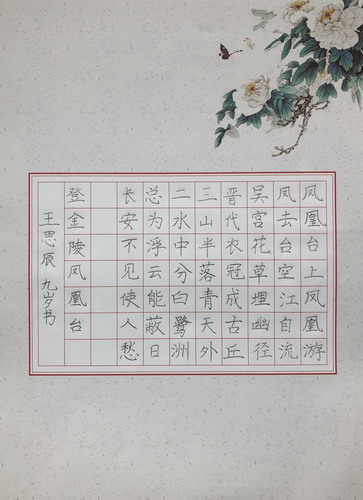 凤凰台上凤凰游
凤去台空江自流
吴宫花草埋幽径
晋代衣冠成古丘
三山半落青天外
二水中分白鹭洲
总为浮云能蔽日
长安不见使人愁
登金陵凤凰台
王思辰 九岁书